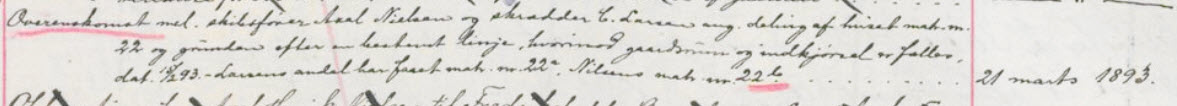 Overenskomst mel. skibsfører Axel Nielsen og skrædder C. Larsen ang. deling af huset matr. nr.
22 og grunden efter en bestemt linje, hvorimod gaardsrum og indkjørsel er fælles,
dat. 93. - Larsens andel har faaet matr. nr. 22a. Nilsens matr. nr. 22b. 21 marts 1893.